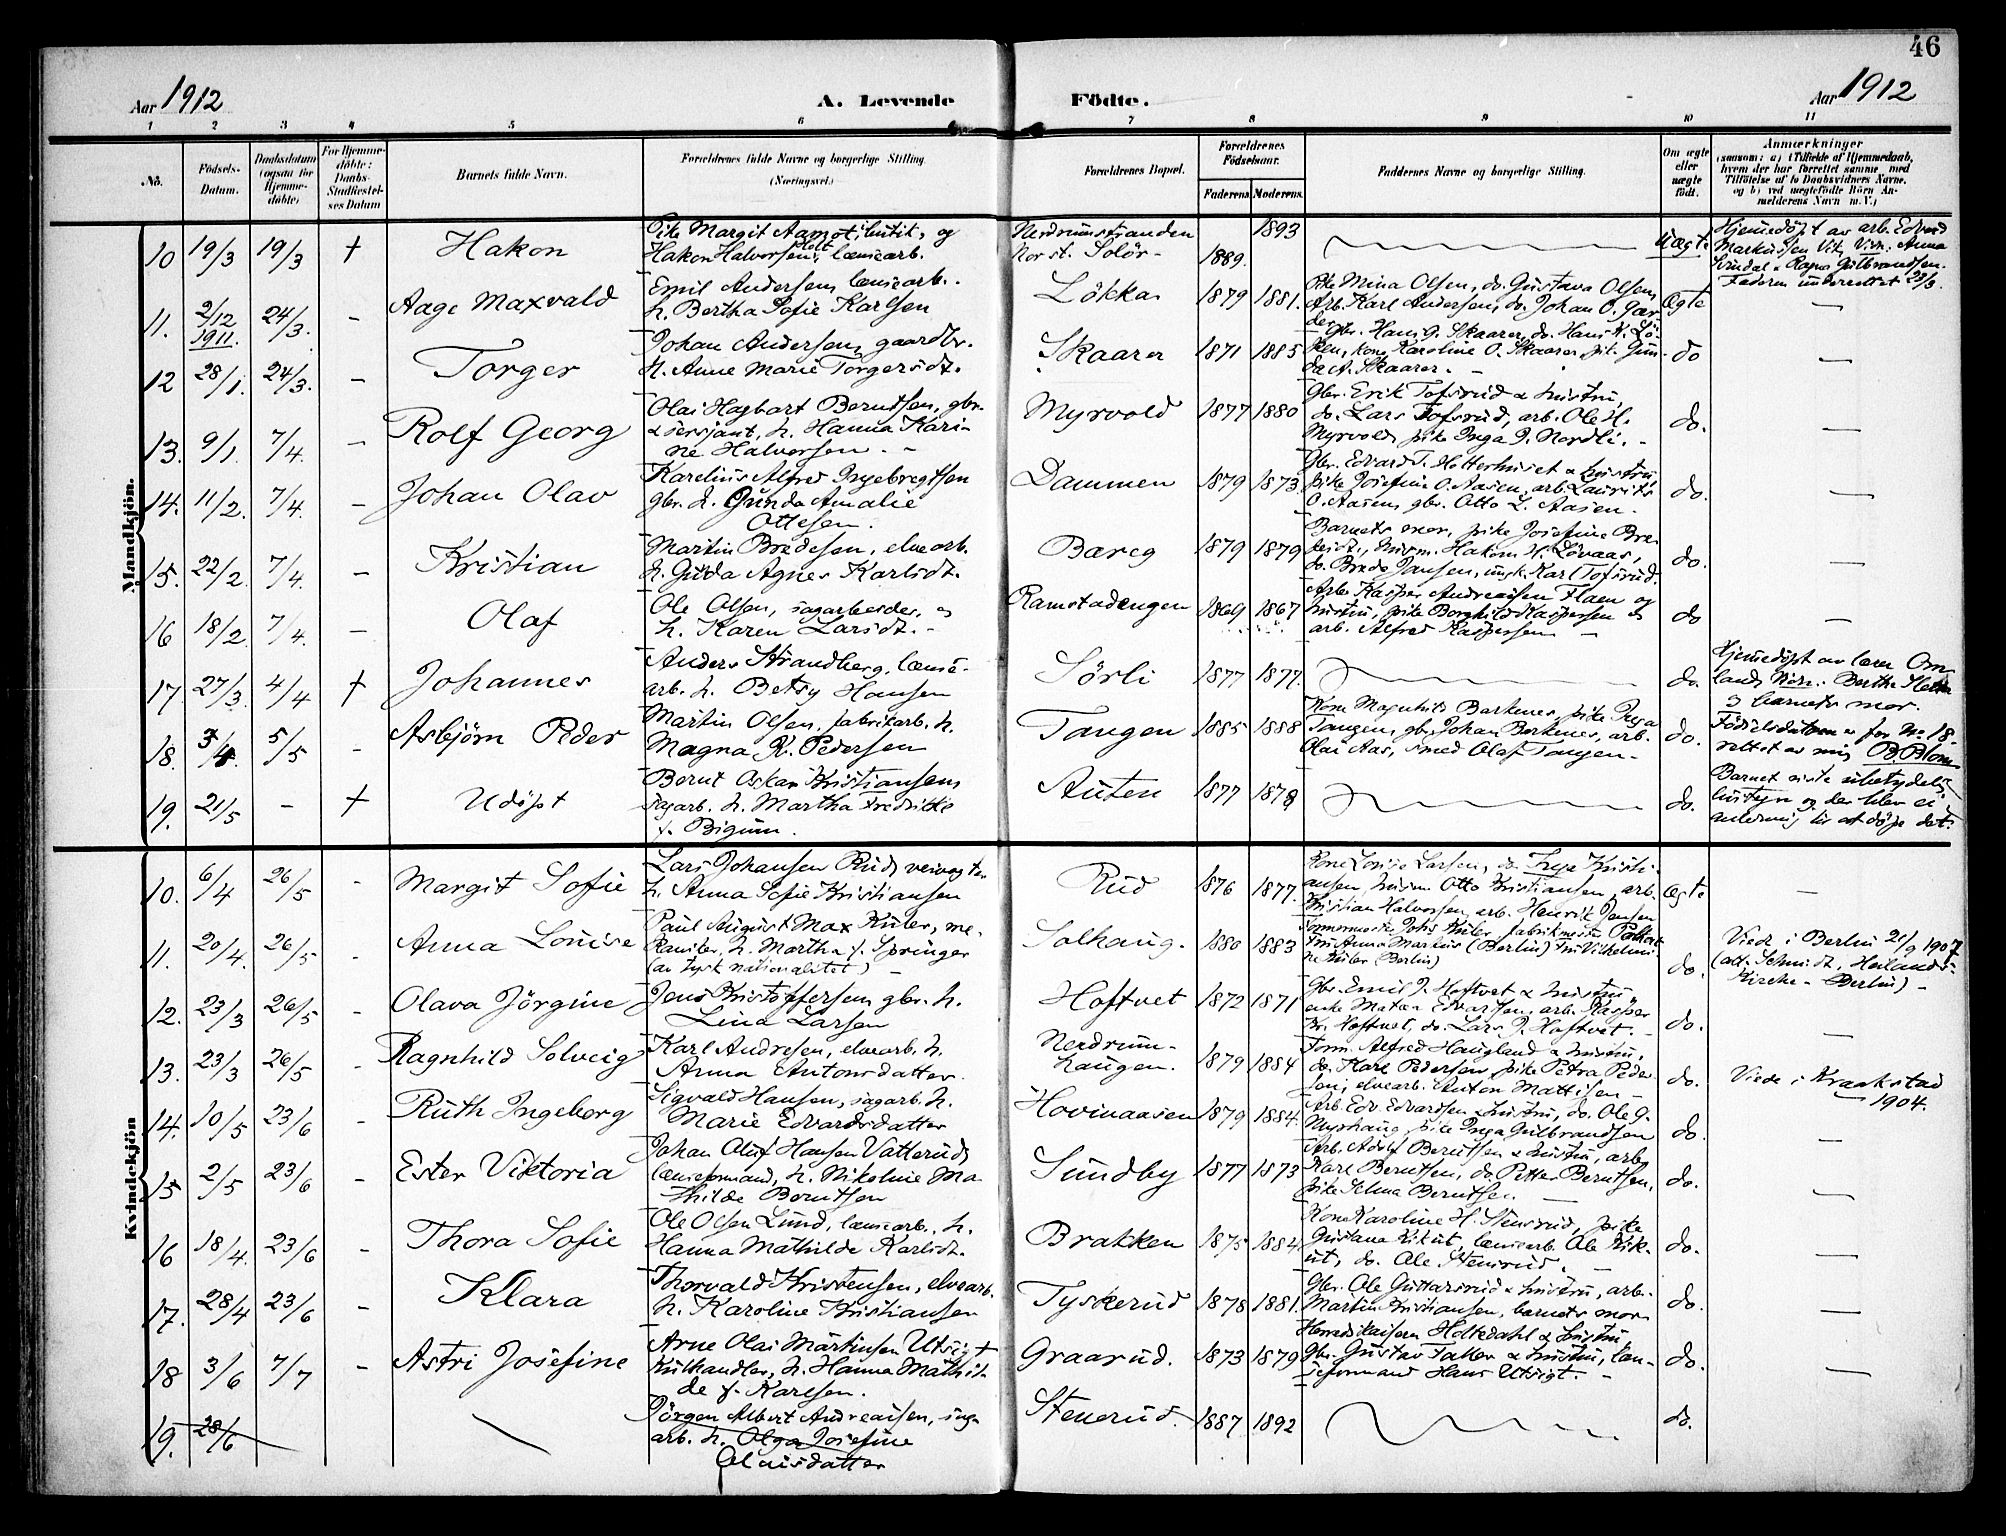 46
Aar 1912
A. Levende Födte.
Aar 1912
1 2 3 4 5 6 7 8 9 10 11
No.
Födsels-Datum.
Daabsdatum (ogsaa for Hjemme-döbte)
For Hjemme-döbte: Daabs-Stadfæstel-ses Datum
Barnets fulde Navn.
Forældrenes fulde Navne og borgerlige Stilling.
(Næringsvei.)
Forældrenes Bopæl.
Forældrenes Födselsaar.
Faderens. Moderens.
Faddernes Navne og borgerlige Stilling.
Om ægte eller uægte födt.
Anmærkninger
(saasom: a) i Tilfælde af Hjemmedaab, hvem der har forrettet samme med Tilföielse af to Daabsvidners Navne, og b) ved uægtefödte Börn An-melderens Navn m. V.)
Mandkjön.
10 19/3 19/3 † Hakon
Pike Margit Aamot, butik, og
Hakon Halvorsen, lænsearb.
Nerdrumstranden
Nor st. Solör-
1889. 1893
uægte
Hjemedöpt av arb. Edvard
Markussen Vik, Vidn. Anna
Svindal & Ragna Gulbrandsen.
Faderen underrettet
11. 2/12 1911. 24/3. - Aage Maxvald
Emil Andersen, lænsearb.
h. Bertha Sofie Karlsen
Lökka 1879 1881.
Pike Mina Olsen, do. Gustava Olsen,
Arb. Karl Andersen, do. Johan O. Gar-
der
Ægte -
12 28/1. 24/3. - Torger
Johan Andersen, gaardbr.
h. Anne Marie Torgersdt.
Skaarer 1871 1885
Gbr. Hans G. Skaarer, do. Hans K. Lö-
ken, kone Karoline O. Skaarer, pik. Gun-
da A. Skaarer. -
do -
13. 9/1. 7/4. - Rolf Georg
Olai Hagbart Berntsen, gbr.
& sersjant, h. Hanna Kari-
ne Halvorsen. -
Myrvold 1877 1880
Gbr. Erik Tofsrud & hustru,
do. Lars Tofsrud, arb. Ole H.
Myrvold, pike Inga J. Nordli. -
do. -
14. 11/2. 7/4. - Johan Olav
Karelius Alfred Ingebregtsen
gbr. h. Gunda Amalie
Ottesen.
Dammen 1879 1873
Gbr. Edvard T. Hotterhuset & hustru,
pike Josefine O. Aasen, arb. Laurits
O. Aasen, gbr. Otto L. Aasen.
do. -
15. 22/2. 7/4. - Kristian
Martin Bredesen, elvearb.
h. Gulda Agnes Karlsdt.
Bareg 1879 1879
Barnets mor, pike Josefine Bre-
desdt., husm. Hakon H. Lövaas,
do. Brede Jansen, ungk. Karl Tofsrud.
do. -
16 18/2. 7/4. - Olaf
Ole Olsen, sagarbeider, og
h. Karen Larsdt. -
Ramstadengen 1869 1867
Arb. Kasper Andreassen Flaen og
hustru, pike Borghild Kaspersen &
arb. Alfred Kaspersen -
do -
17. 27/3. 4/4 † Johannes
Anders Strandberg, lænse-
arb. h. Betsy Hansen
Sörli 1877 1877.
do.
Hjemedöpt av lærer Om-
land. Vidn. Berthe
og barnets mor.
18. 3/4. 5/5 - Asbjörn Peder
Martin Olsen, fabrikarb. h.
Magna K. Pedersen
Tangen 1885 1888
Kone Magnhild Barkenes, pike Inga
Tangen, gbr. Johan Barkenes, arb.
Olai Aas, smed Olaf Tangen.
do.
Födselsdatoen for No 18.
rettet av mig B. Blom
19. 21/5 - † Udöpt
Bernt Oskar Kristiansen,
sagarb. h. Martha Fredrikke
f. Bigum.
Auten 1877 1878
do.
Barnet viste ubetydelig
livstegn og der blev ei
anledning til at döpe det.
Kvindekjön
10. 6/4 26/5 - Margit Sofie
Lars Johansen Rud, veivogter
h. Anna Sofie Kristiansen
Rud 1876 1877.
Kone Lovise Larsen, do. Inga Kristi-
ansen, husm. Otto Kristiansen, arb.
Kristian Halvorsen, arb. Henrik Jensen
Ægte -
11. 20/4. 26/5 - Anna Louise
Paul August Max Küler, me-
kaniker, h. Martha f. Springer
(av tysk nationalitet) -
Solhaug. 1880 1883
Fru Anna Markus (Berlin) Fru Vilhelmi-
ne Küler (Berlin)
do.
Viede i Berlin 21/9 1907
(att. Schmidt, Heilands-
Kirche - Berlin) -
12. 23/3 26/5 - Olava Jörgine
Jens Kristoffersen, gbr. h.
Lina Larsen
Hoftvet 1872 1871
Gbr. Emil J. Hoftvet & hustru
enke Matea Edvardsen, arb. Kasper
Kr. Hoftvet, do. Lars J. Hoftvet. -
do. -
13. 23/3 26/5 - Ragnhild Solveig
Karl Andresen, elvearb. h.
Anna Antonsdatter.
Nerdrum-
haugen. 1879 1884
Form. Alfred Haugland & hustru,
do. Karl Pedersen, pike Petra Peder-
sen, elvearb. Anton Mattisen -
do.
Viede i Kraakstad
1904.
14. 10/5 23/6 - Ruth Ingeborg
Sigvald Hansen, sagarb. h.
Marie Edvardsdatter
Hovinaasen 1879 1884.
Arb. Edv. Edvardsen & hustru, do. Ole G.
Myrhaug, pike Inga Gulbrandsen
do. -
15 2/5 23/6 - Ester Viktoria
Johan Oluf Hansen Vatterud,
lænseformand, h. Nikoline Ma-
thilde Berntsen
Sundby 1877 1873
Arb. Adolf Berntsen & hustru, arb.
Karl Berntsen, do. Petter Berntsen,
pike Selma Berntsen. -
do. -
16 18/4. 23/6 - Thora Sofie
Ole Olsen Lund, lænsearb. h.
Hanna Mathilde Karlsdt.
Brakken 1875 1884
Kone Karoline H. Stensrud, pike
Gustava Kikut, lænsearb. Ole Kik-
ut, do. Ole Stensrud. -
do. -
17. 28/4 23/6 - Klara
Thorvald Kristensen, elvearb.
h. Karoline Kristiansen
Tyskerud 1878 1881.
Gbr. Ole Guttarsrud & hustru, arb.
Martin Kristiansen, barnets mor
do. -
18 3/6 7/7 - Astri Josefine
Arne Olai Martinsen Utsigt
kulhandler, h. Hanna Mathil-
de f. Karlsen.
Graarud. 1873 1879
Herredskasserer Holtedahl & hustru,
gbr. Gustav Faller & hustru, læn-
seformand Hans Utsigt. -
do. -
19. 28/6
Jörgen Albert Andreassen, sag-
arb. h. Olga Josefine
Olaisdatter
Stenerud. 1887 1892
do.